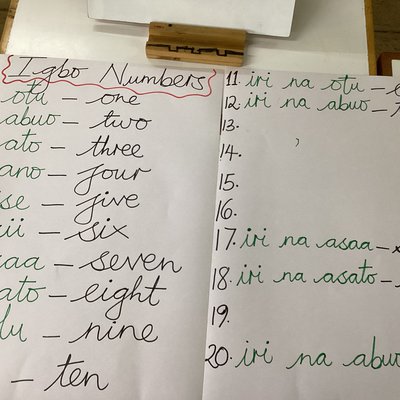 Igbo Numbers
otu – one
abuo – two
ato – three
ano – four
ise – five
ii – six
saa – seven
ato – eight
lu – nine
– ten
11. iri na otu –
12. iri na abuo –
13.
14.
15.
16.
17. iri na asaa –
18. iri na asato –
19.
20. iri na abuo